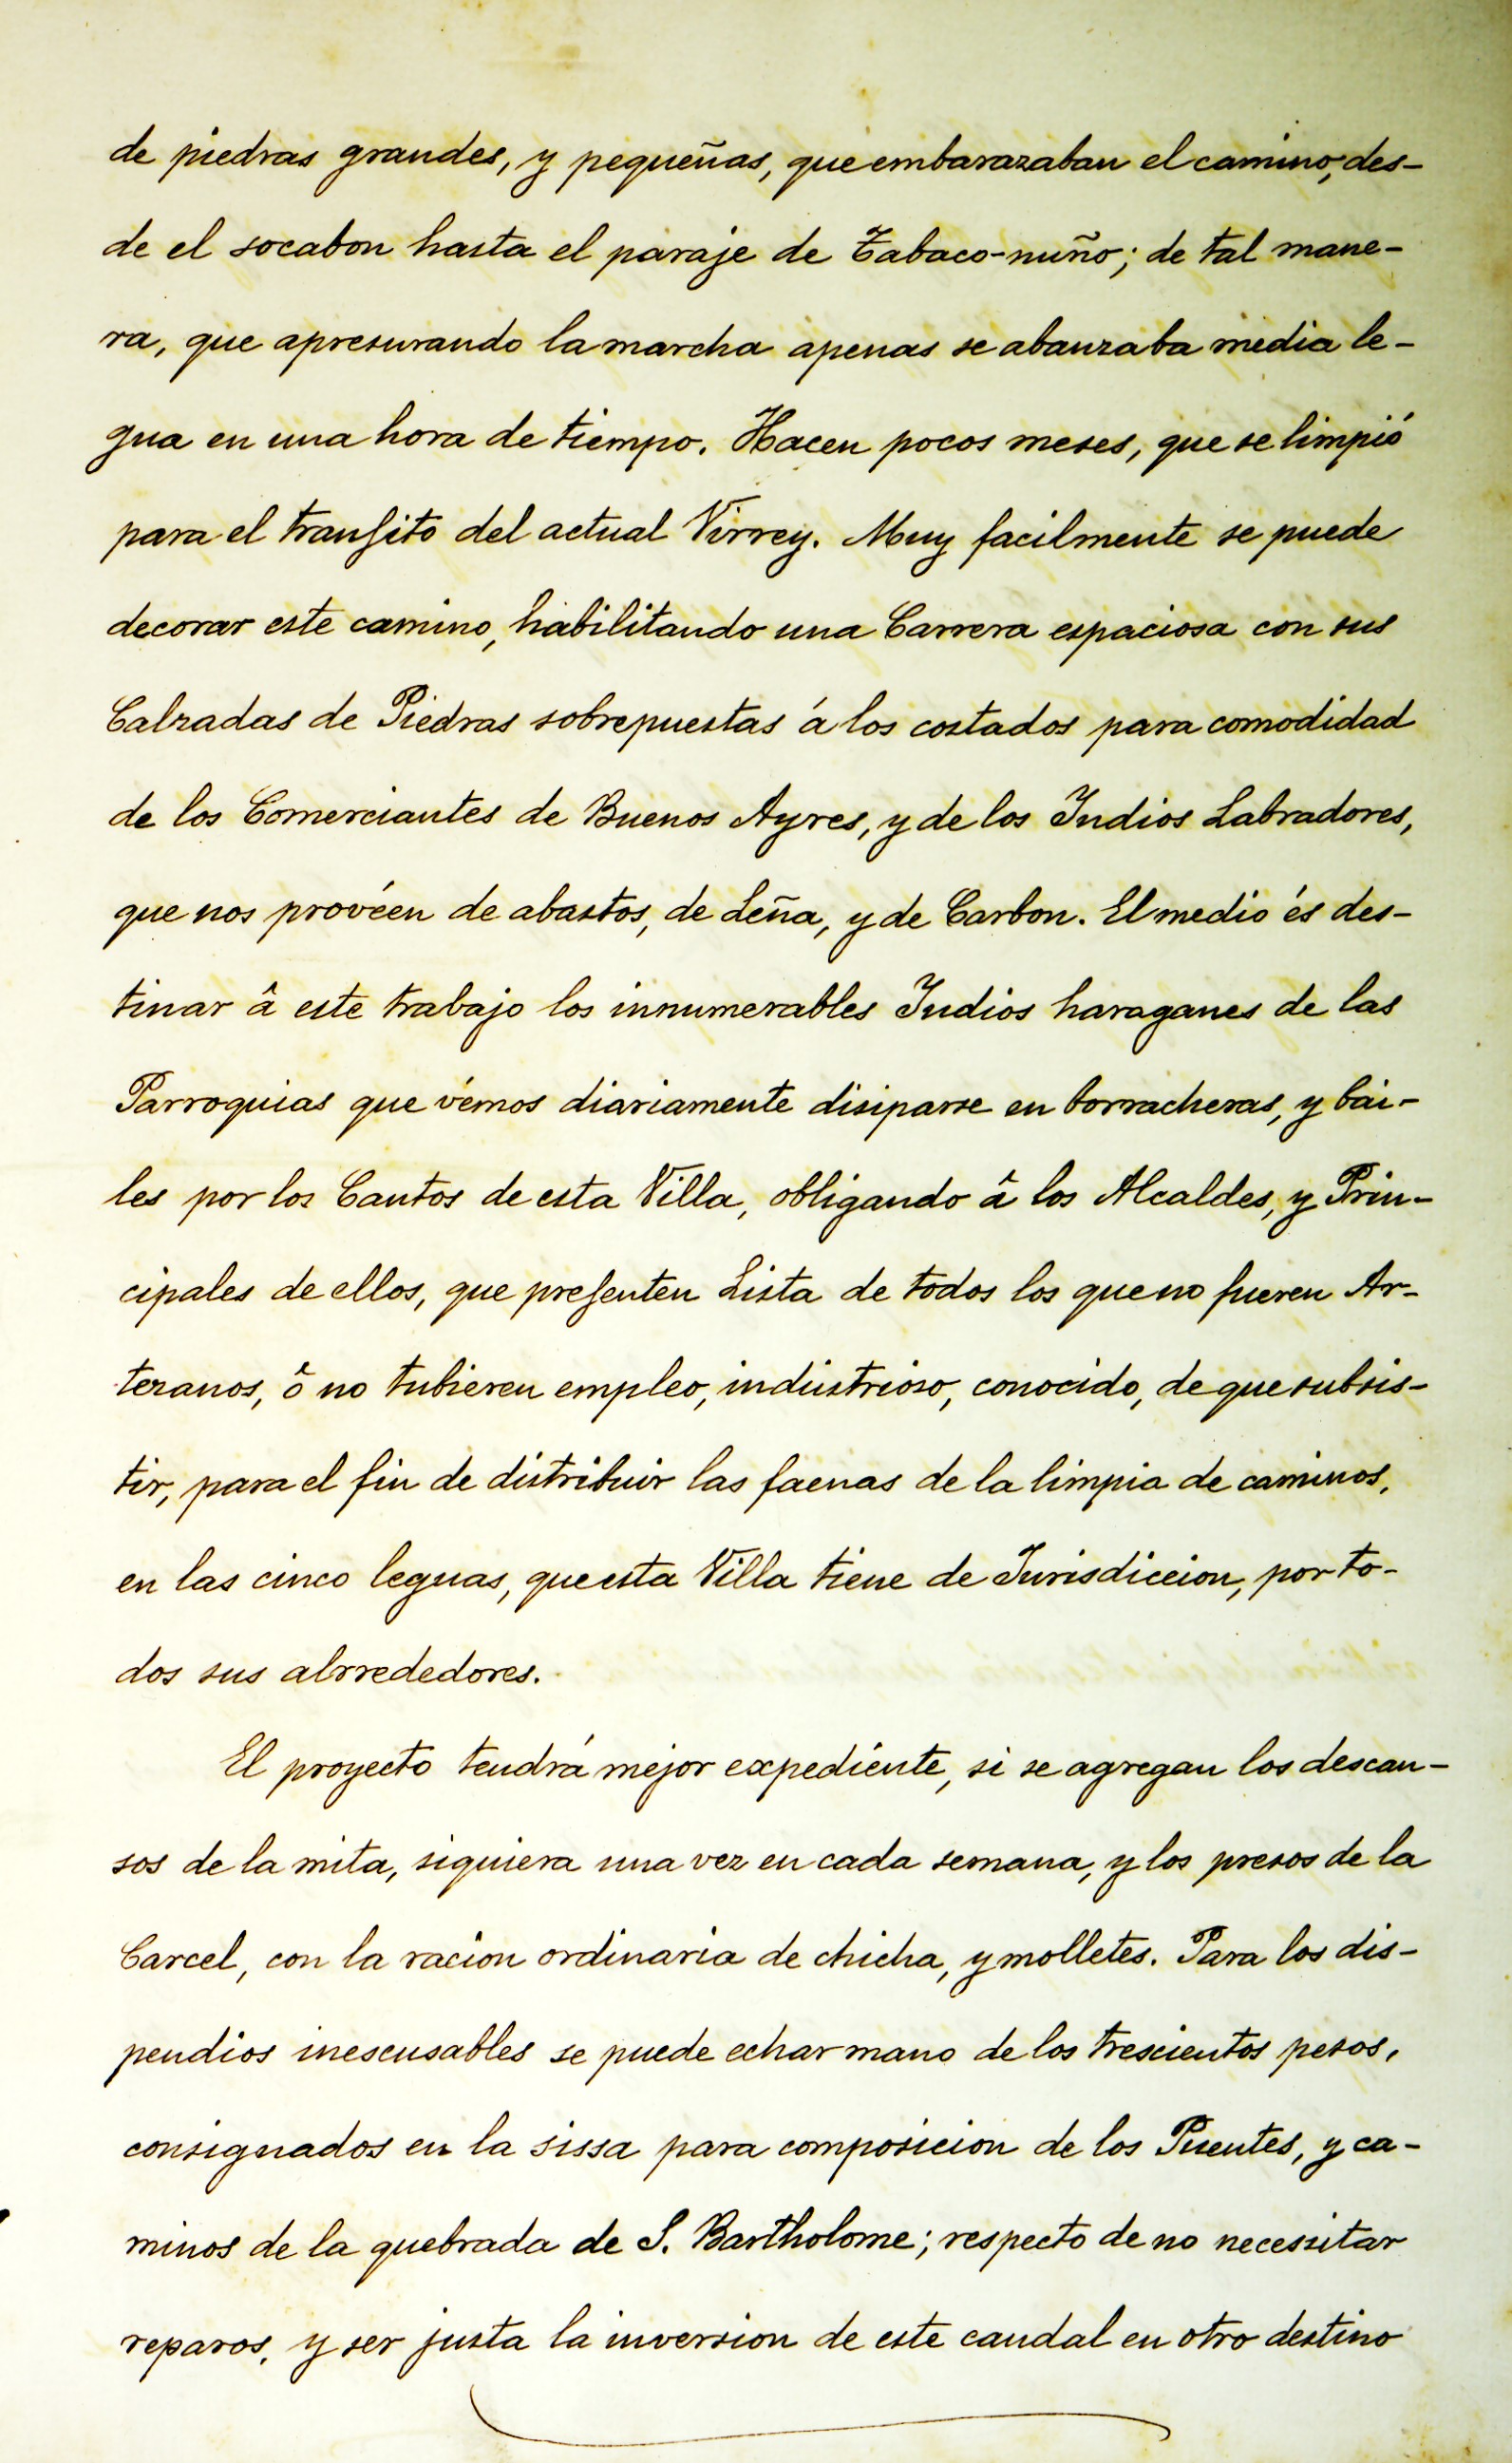 de piedras grandes, y pequeñas, que embarazaban el camino, des-
de el socabon hasta el paraje de Tabaco-nuño; de tal mane-
ra, que apresurando la marcha apenas se abanzaba media le-
gua en una hora de tiempo. Hacen pocos meses, que se limpió
para el transito del actual Virrey. Muy facilmente se puede
decorar este camino, habilitando una Carrera espaciosa con sus
Calzadas de Piedras sobrepuestas á los costados para comodidad
de los Comerciantes de Buenos Ayres, y de los Indios Labradores,
que nos provéen de abastos, de Leña, y de Carbon. El medio és des-
tinar â este trabajo los innumerables Indios haraganes de las
Parroquias que vémos diariamente disiparse en borracheras, y bai-
les por los Cantos de esta Villa, obligando â los Alcaldes, y Prin-
cipales de ellos, que presenten Lista de todos los que no fueren Ar-
tezanos, ô no tubieren empleo, industrioso, conocido, de que subsis-
tir, para el fin de distribuir las faenas de la limpia de caminos,
en las cinco leguas, que esta Villa tiene de Jurisdiccion, por to-
dos sus alrrededores.
El proyecto tendrá mejor expediente, si se agregan los descan-
sos de la mita, siquiera una vez en cada semana, y los presos de la
Carcel, con la racion ordinaria de chicha, y molletes. Para los dis-
pendios inescusables se puede echar mano de los trescientos pesos,
consignados en la sissa para composicion de los Puentes, y ca-
minos de la quebrada de S. Bartholome; respecto de no necessitar
reparos, y ser justa la inversion de este caudal en otro destino